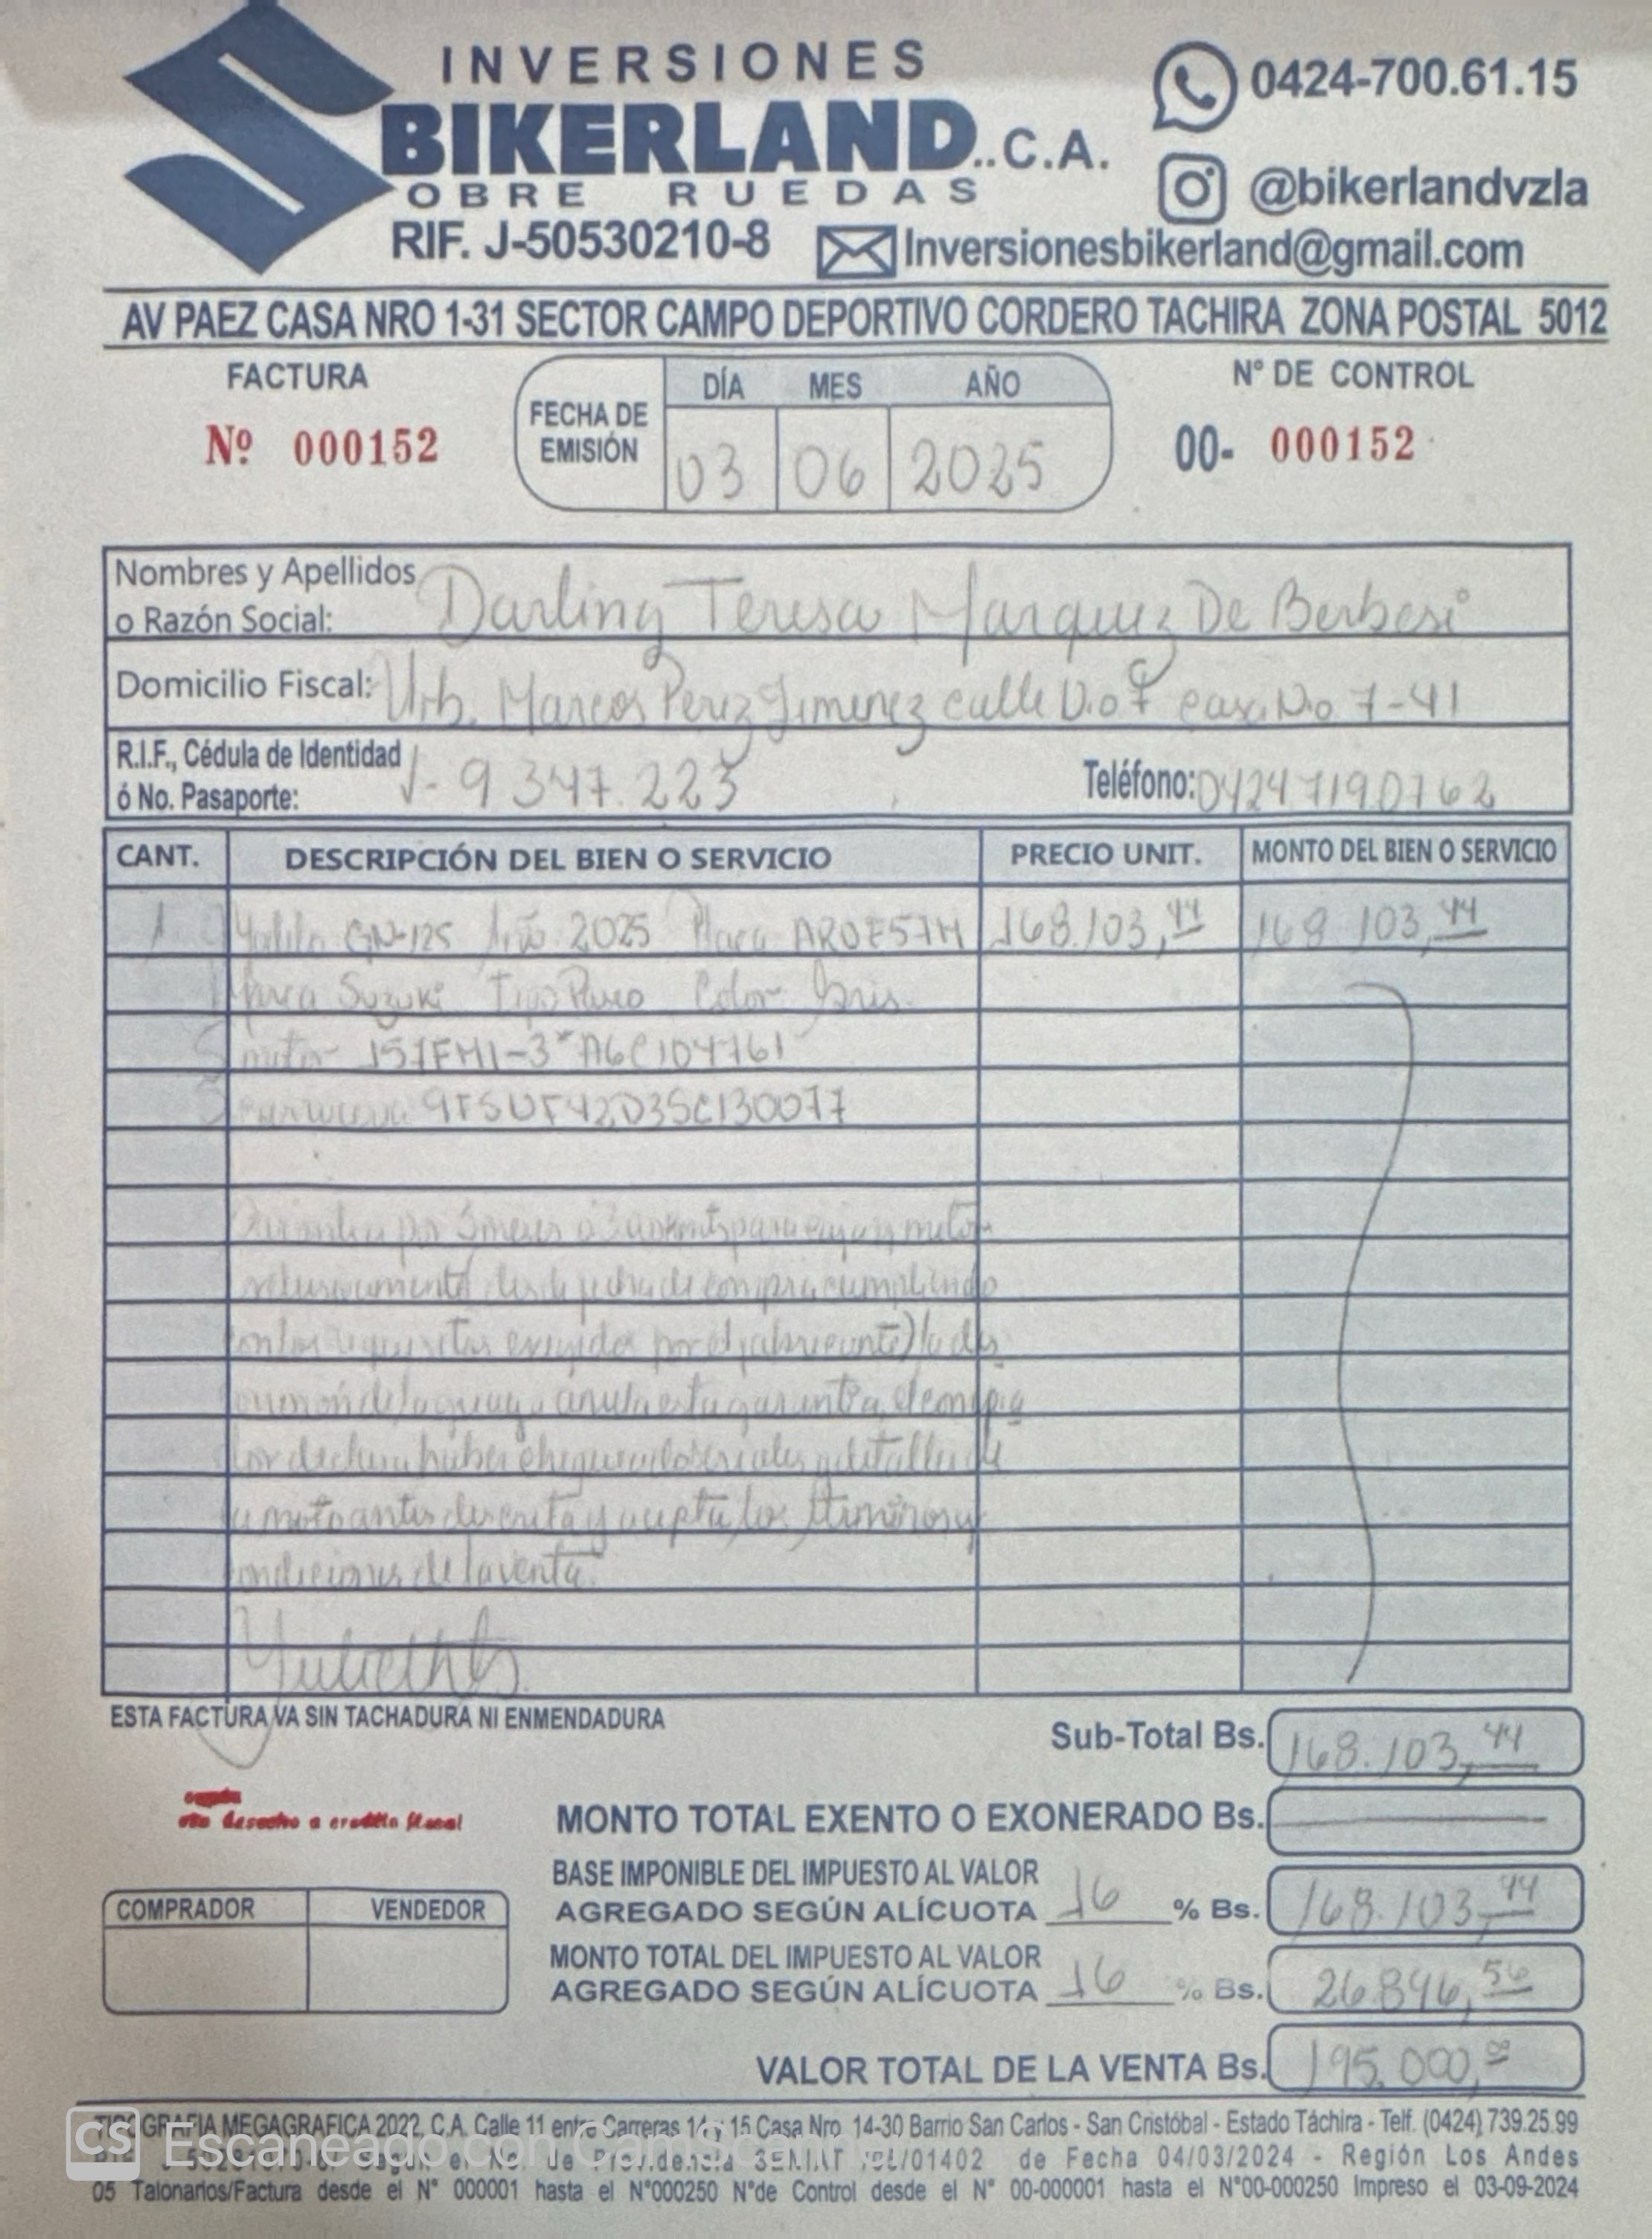 INVERSIONES
BIKERLAND..C.A.
OBRE RUEDAS
RIF. J-50530210-8
0424-700.61.15
@bikerlandvzla
Inversionesbikerland@gmail.com
AV PAEZ CASA NRO 1-31 SECTOR CAMPO DEPORTIVO CORDERO TACHIRA ZONA POSTAL 5012
FACTURA
Nº 000152
FECHA DE EMISIÓN
DÍA MES AÑO
03 06 2025
N° DE CONTROL
00- 000152
Nombres y Apellidos o Razón Social: Darling Teresa Marquez De Berbesi
Domicilio Fiscal: Urb. Marcos Perez Jimenez calle N.o 7 casa N.o 7-41
R.I.F., Cédula de Identidad ó No. Pasaporte: V- 9 347.223 Teléfono: 04247190762
CANT. DESCRIPCIÓN DEL BIEN O SERVICIO PRECIO UNIT. MONTO DEL BIEN O SERVICIO
1 Modelo GN-125 Año 2025 Placa 168.103,44 168 103,44
Marca Suzuki Tipo Paseo Color Gris
S motor
por 3 meses o para caja y motor
exclusivamente desde fecha de compra cumpliendo
con los requisitos exigidos por el fabricante)
anula esta garantia, el compra
dor declara haber chequeado seriales y detalles de
la moto antes descrita y acepta los términos y
condiciones de la venta.
ESTA FACTURA VA SIN TACHADURA NI ENMENDADURA
Sub-Total Bs. 168.103,44
derecho a credito fiscal
MONTO TOTAL EXENTO O EXONERADO Bs.
BASE IMPONIBLE DEL IMPUESTO AL VALOR
AGREGADO SEGÚN ALÍCUOTA 16 % Bs. 168.103,44
MONTO TOTAL DEL IMPUESTO AL VALOR
AGREGADO SEGÚN ALÍCUOTA 16 % Bs. 26.896,56
COMPRADOR VENDEDOR
VALOR TOTAL DE LA VENTA Bs. 195.000,00
TIPOGRAFIA MEGAGRAFICA 2022, C.A. Calle 11 entre Carreras 14 y 15 Casa Nro. 14-30 Barrio San Carlos - San Cristóbal - Estado Táchira - Telf. (0424) 739.25.99
de Providencia SENIAT de Fecha 04/03/2024 - Región Los Andes
05 Talonarios/Factura desde el N° 000001 hasta el N°000250 N°de Control desde el N° 00-000001 hasta el N°00-000250 Impreso el 03-09-2024
CS Escaneado con CamScanner